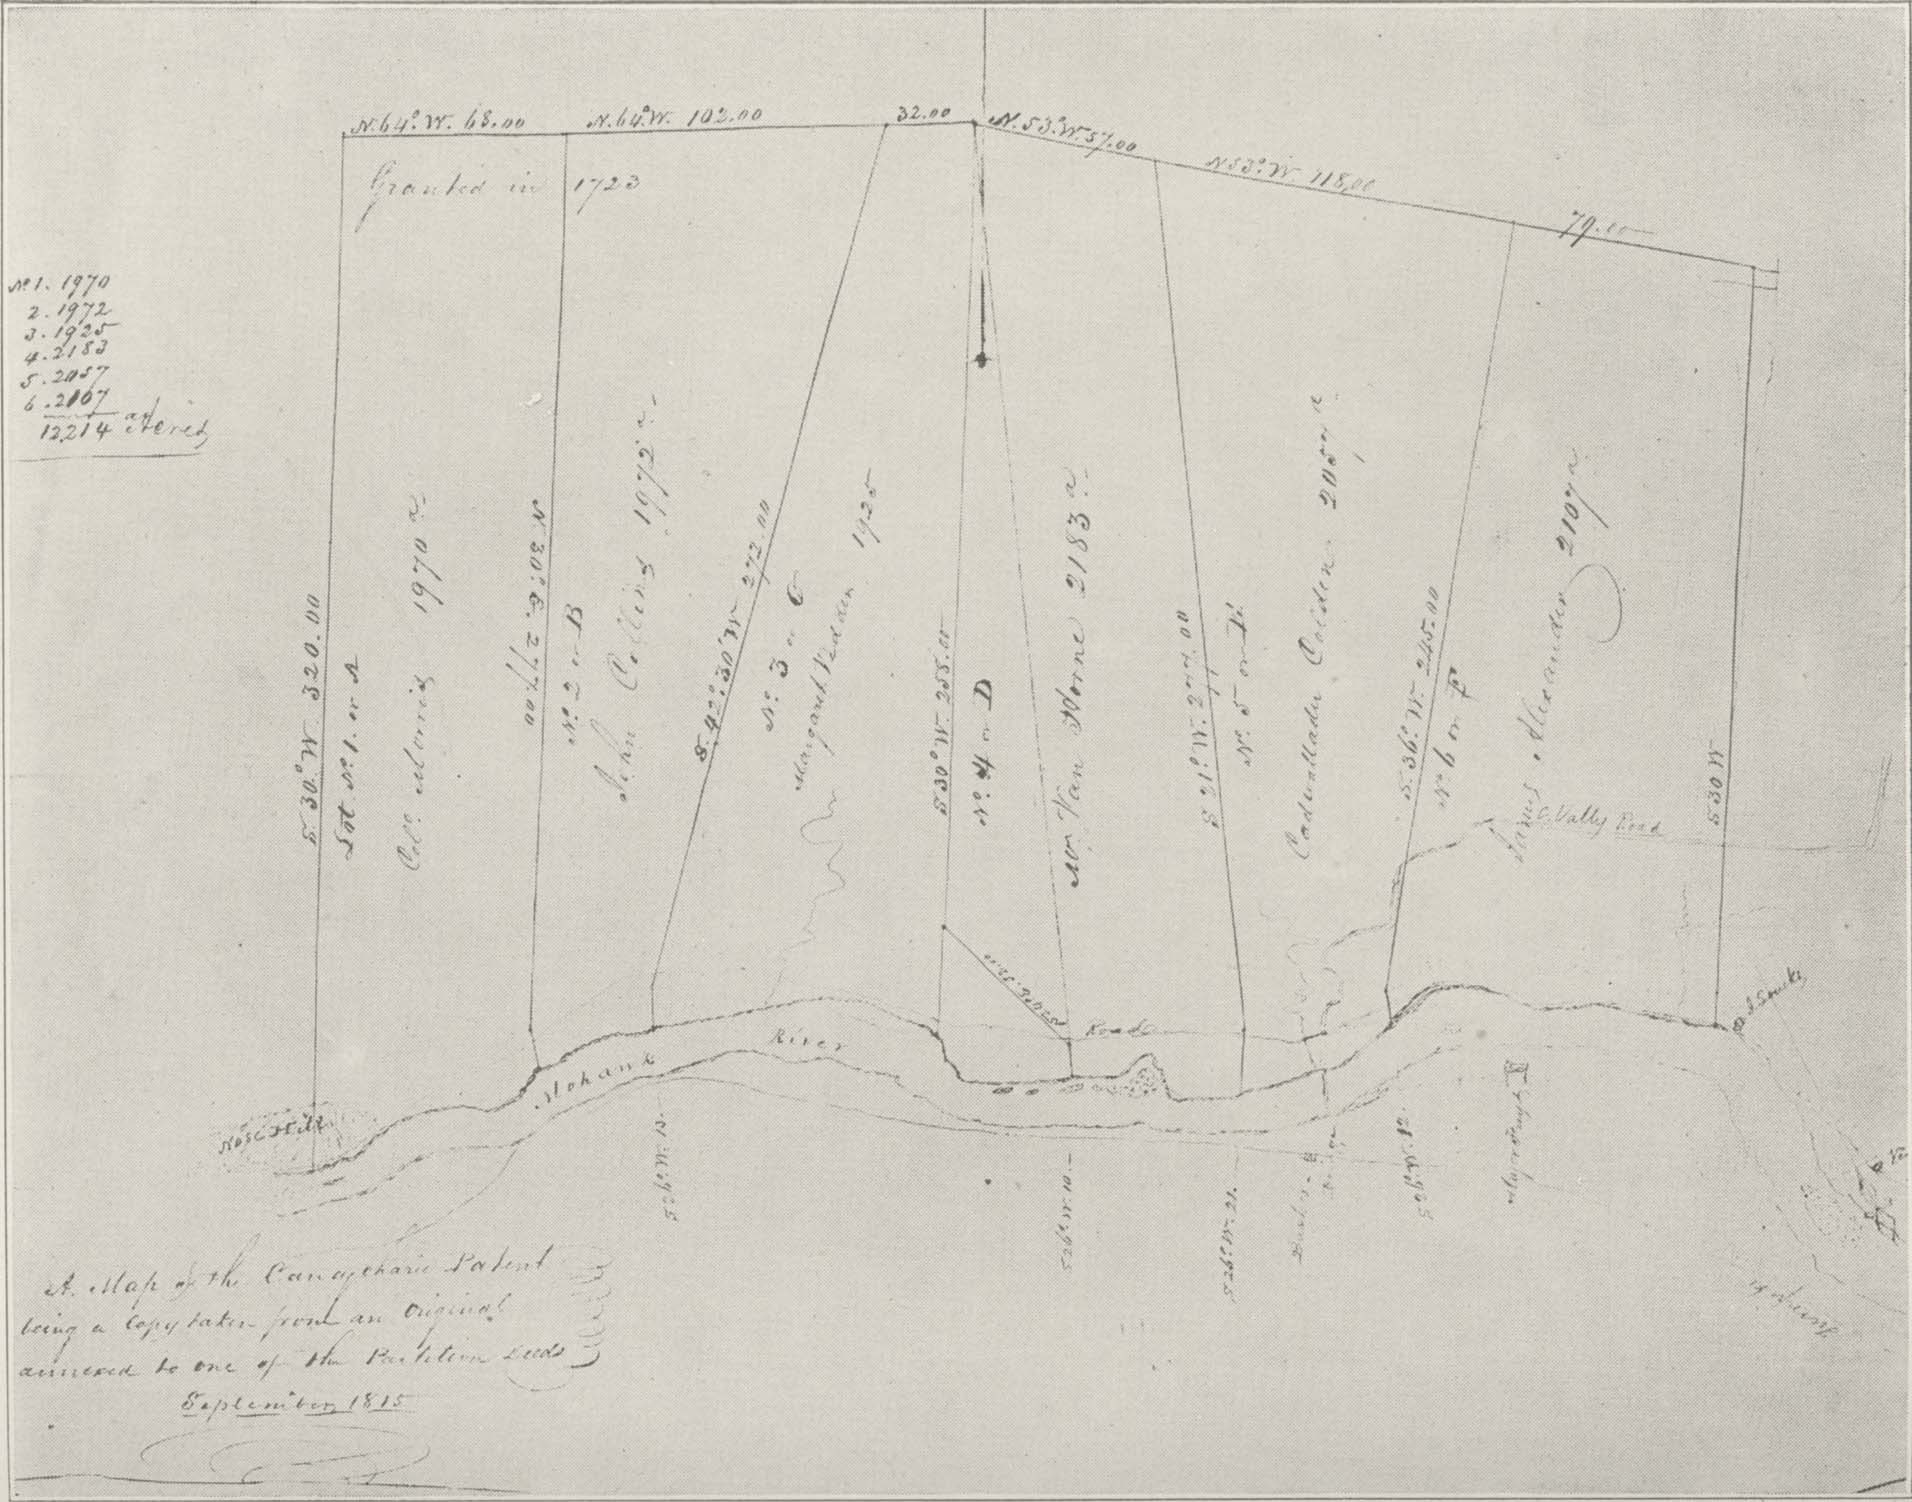 N. 64° W. 68.00
N. 64° W. 102.00
32.00
N. 53° W. 57.00
N 53° W. 118.00
79.00
Granted in 1723
No 1. 1970
2. 1972
3. 1925
4. 2183
5. 2057
6. 2107
12,214 Acres
S 30° W. 320.00
Lot No 1. or A
Coll. Morris 1970 a.
N. 30° E. 277.00
No 2 or B
John Collins 1972 a.
S. 42° 30' W 272.00
No. 3 or C
Margaret Vedder 1925
S 30° W. 258.00
No. 4 or D
Mr Van Horne 2183 a.
S 21° W. 277.00
No. 5 or E
Cadwallader Colden 2057 a
S. 36° W. 245.00
No. 6 or F
James Alexander 2107 a
S 30 W
C. Vally Road
Road
Mohauk River
Nose Hill
S 26° W. 13.
S 26° W. 10.
S 26° W. 21.
S 26° W. 12.
A. Map of the Canajoharie Patent
being a Copy taken from an Original
annexed to one of the Partition Deeds
September 1815